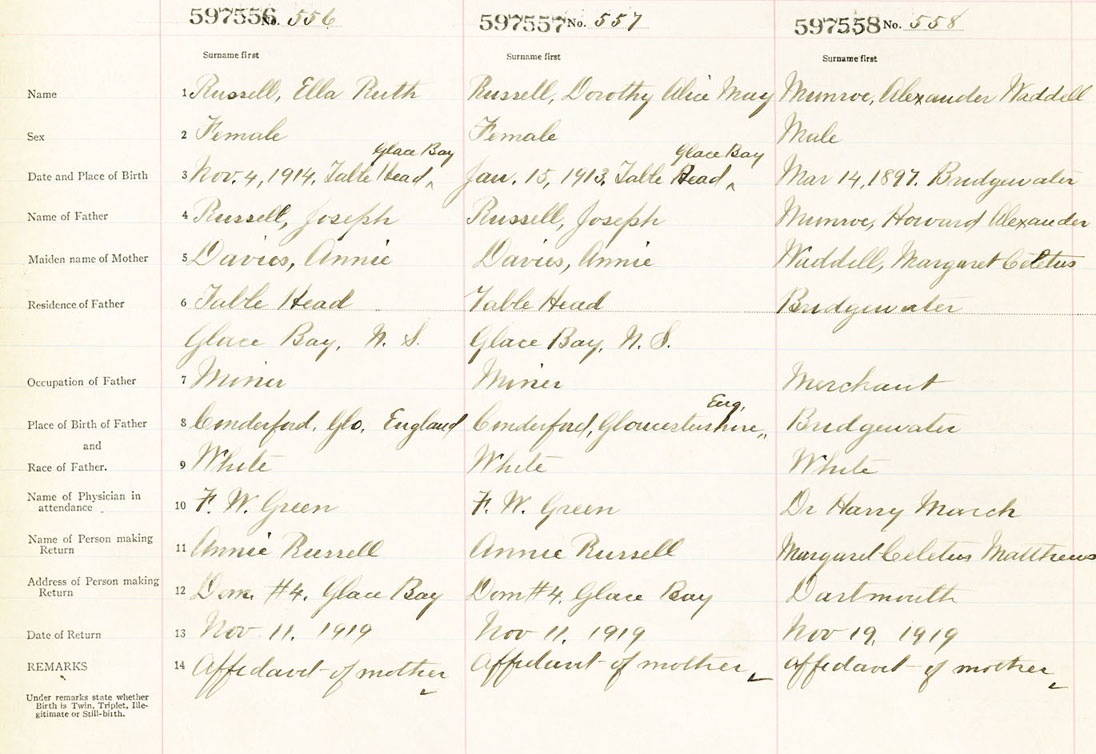 597556 No. 556 597557 No. 557 597558 No. 558
Surname first Surname first Surname first
Name 1 Russell, Ella Ruth Russell, Dorothy Alice May Munroe, Alexander Waddell
Sex 2 Female Female Male
Glace Bay Glace Bay
Date and Place of Birth 3 Nov. 4, 1914. Table Head ^ Jan. 15, 1913. Table Head ^ Mar 14, 1897. Bridgewater
Name of Father 4 Russell, Joseph Russell, Joseph Munroe, Howard Alexander
Maiden name of Mother 5 Davies, Annie Davies, Annie Waddell, Margaret Celetus
Residence of Father 6 Table Head Table Head Bridgewater
Glace Bay, N. S. Glace Bay, N. S.
Occupation of Father 7 Miner Miner Merchant
Eng.
Place of Birth of Father 8 Cinderford, Glo. England Cinderford, Gloucestershire, Bridgewater
and
Race of Father. 9 White White White
Name of Physician in
attendance 10 F. W. Green F. W. Green Dr Harry March
Name of Person making
Return 11 Annie Russell Annie Russell Margaret Celetus Matthews
Address of Person making
Return 12 Dom. #4. Glace Bay Dom #4, Glace Bay Dartmouth
Date of Return 13 Nov. 11. 1919 Nov 11, 1919 Nov 19, 1919
REMARKS 14 Affidavit of mother Affidavit of mother Affidavit of mother
Under remarks state whether
Birth is Twin, Triplet, Ille-
gitimate or Still-birth.